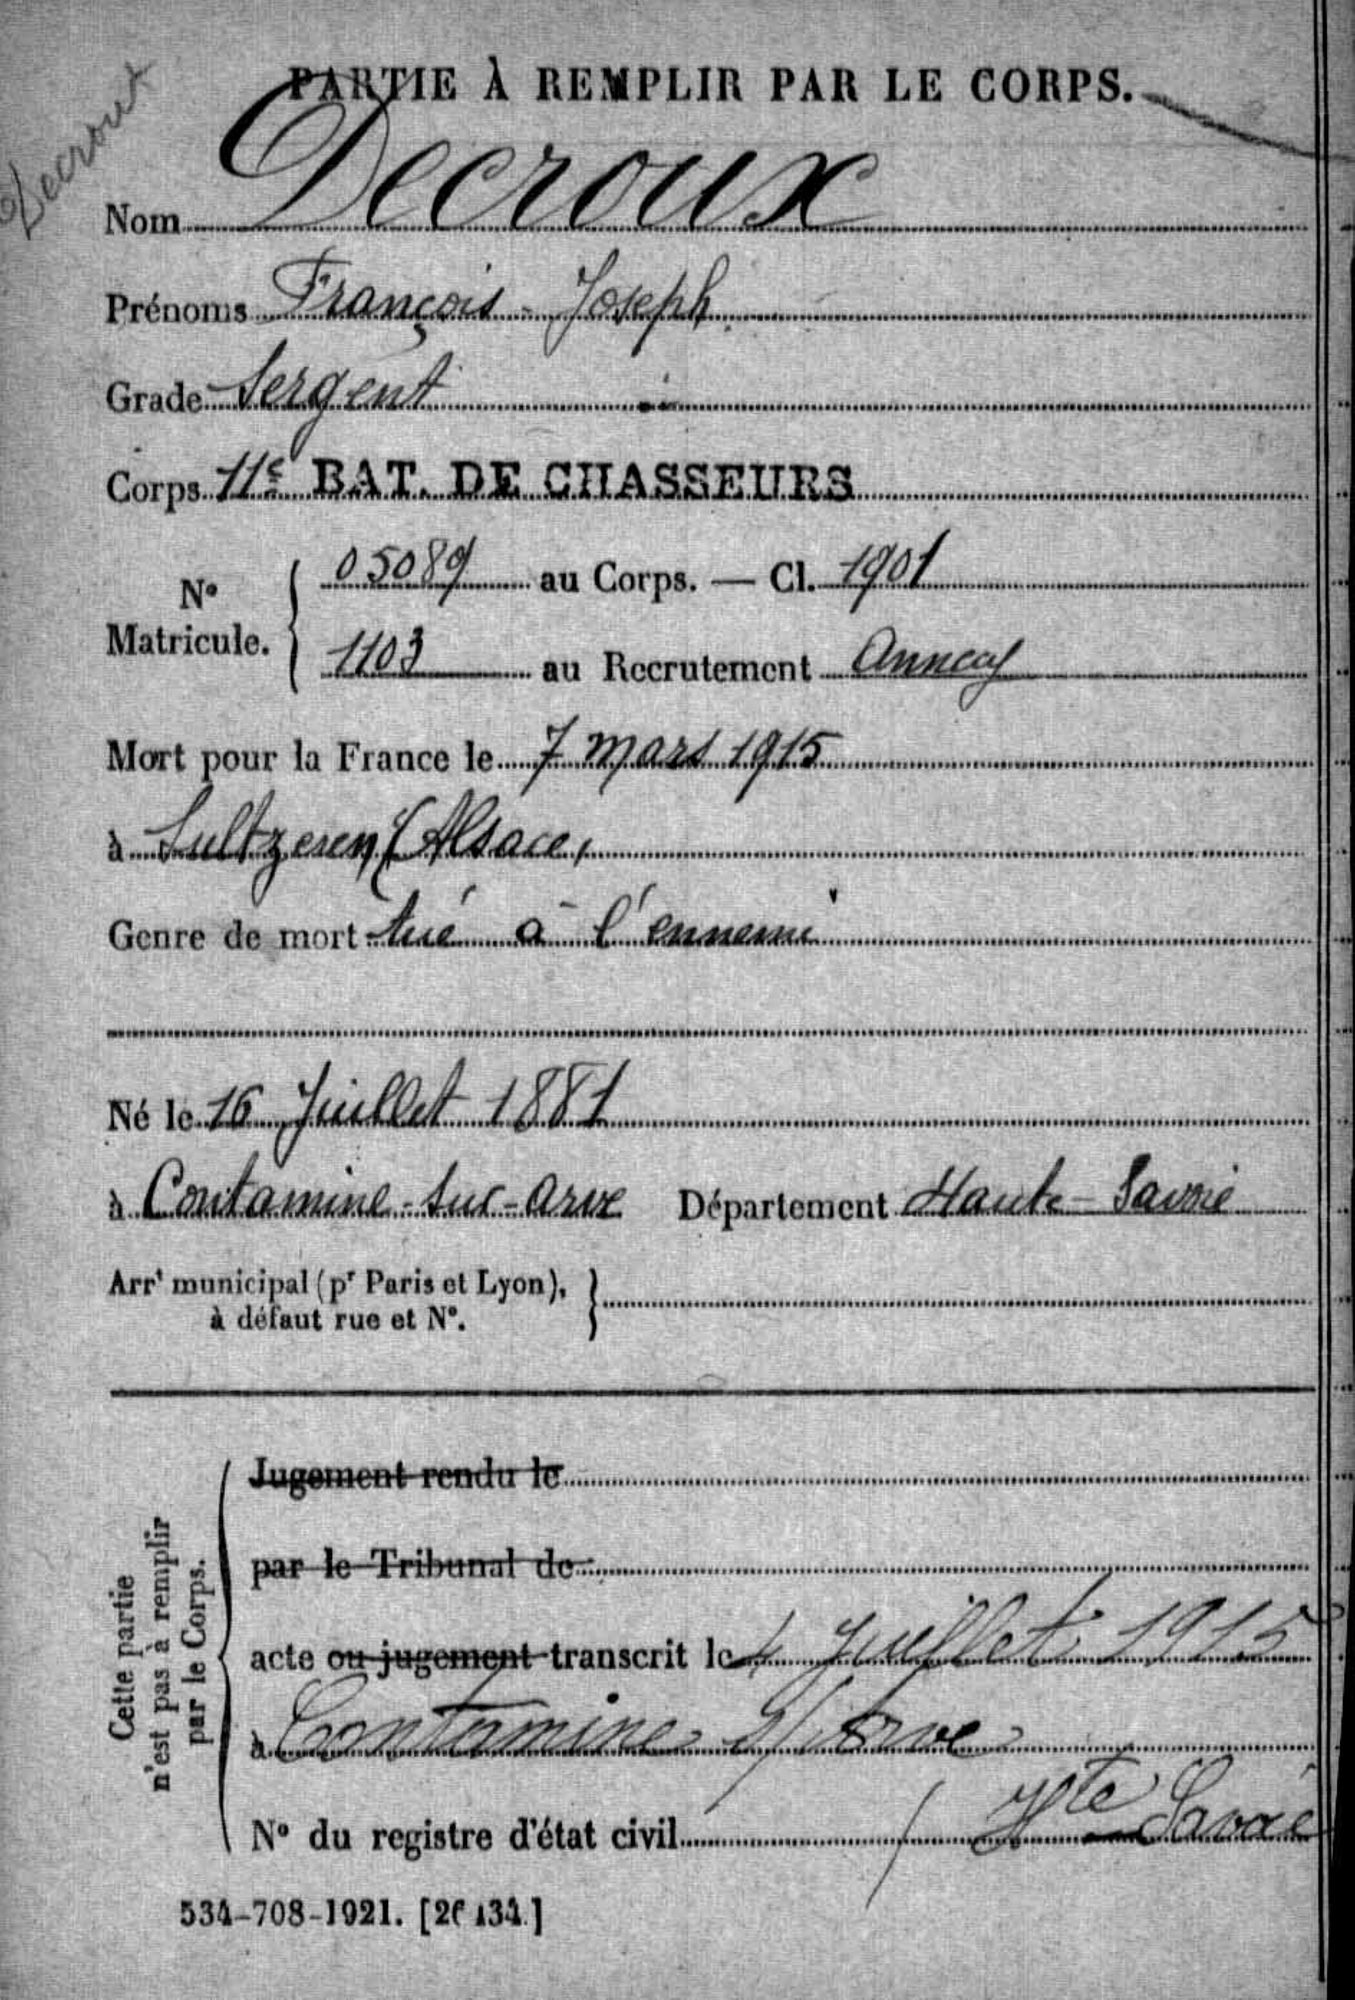 Decroux
PARTIE À REMPLIR PAR LE CORPS.
Nom Decroux
Prénoms François-Joseph
Grade Sergent
Corps 11e BAT. DE CHASSEURS
No Matricule. { 05089 au Corps. — Cl. 1901
1103 au Recrutement Annecy
Mort pour la France le 7 mars 1915
à Sultzeren (Alsace,
Genre de mort tué à l'ennemi
Né le 16 Juillet 1881
à Contamine-sur-arve Département Haute-Savoie
Arrt municipal (pr Paris et Lyon), }
à défaut rue et No.
Cette partie
n'est pas à remplir
par le Corps.
Jugement rendu le
par le Tribunal de
acte ou jugement transcrit le 4 Juillet 1915
à Contamine s/ Arve
No du registre d'état civil ( Hte Savoie
534-708-1921. [26134.]